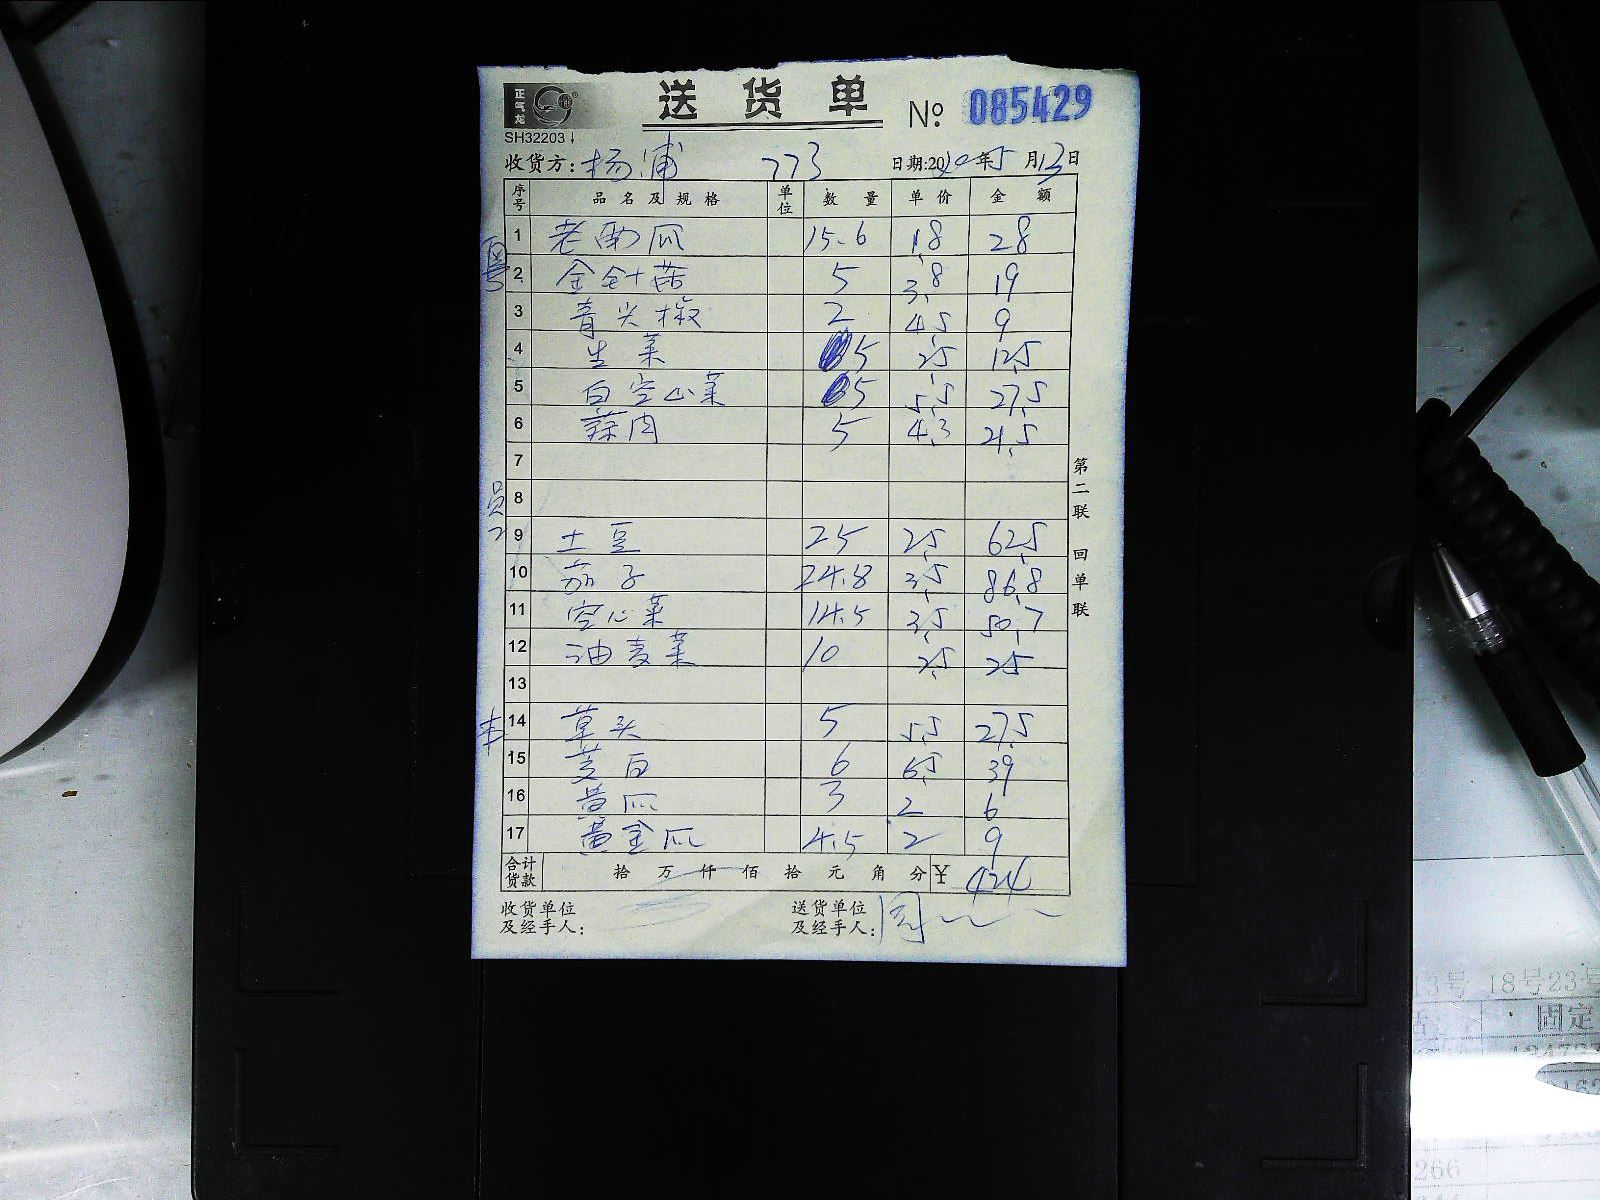 正气龙
送货单 No 085429
SH32203
收货方: 杨浦 773 日期:2020年5月13日
序号 品名及规格 单位 数量 单价 金额
1 老南瓜 15.6 1.8 28
粤
2 金针菇 5 3.8 19
3 青尖椒 2 4.5 9
4 生菜 5 2.5 12.5
5 白空心菜 5 5.5 27.5
6 蒜肉 5 4.3 21.5
7
8
员
9 土豆 25 2.5 62.5
10 茄子 24.8 3.5 86.8
11 空心菜 14.5 3.5 50.7
12 油麦菜 10 2.5 25
13
14 草头 5 5.5 27.5
15 茭白 6 6.5 39
16 黄瓜 3 2 6
17 黄金瓜 4.5 2 9
合计货款 拾 万 仟 佰 拾 元 角 分 ¥ 424
收货单位及经手人: 送货单位及经手人:
第二联 回单联
13号 18号23号
固定
266